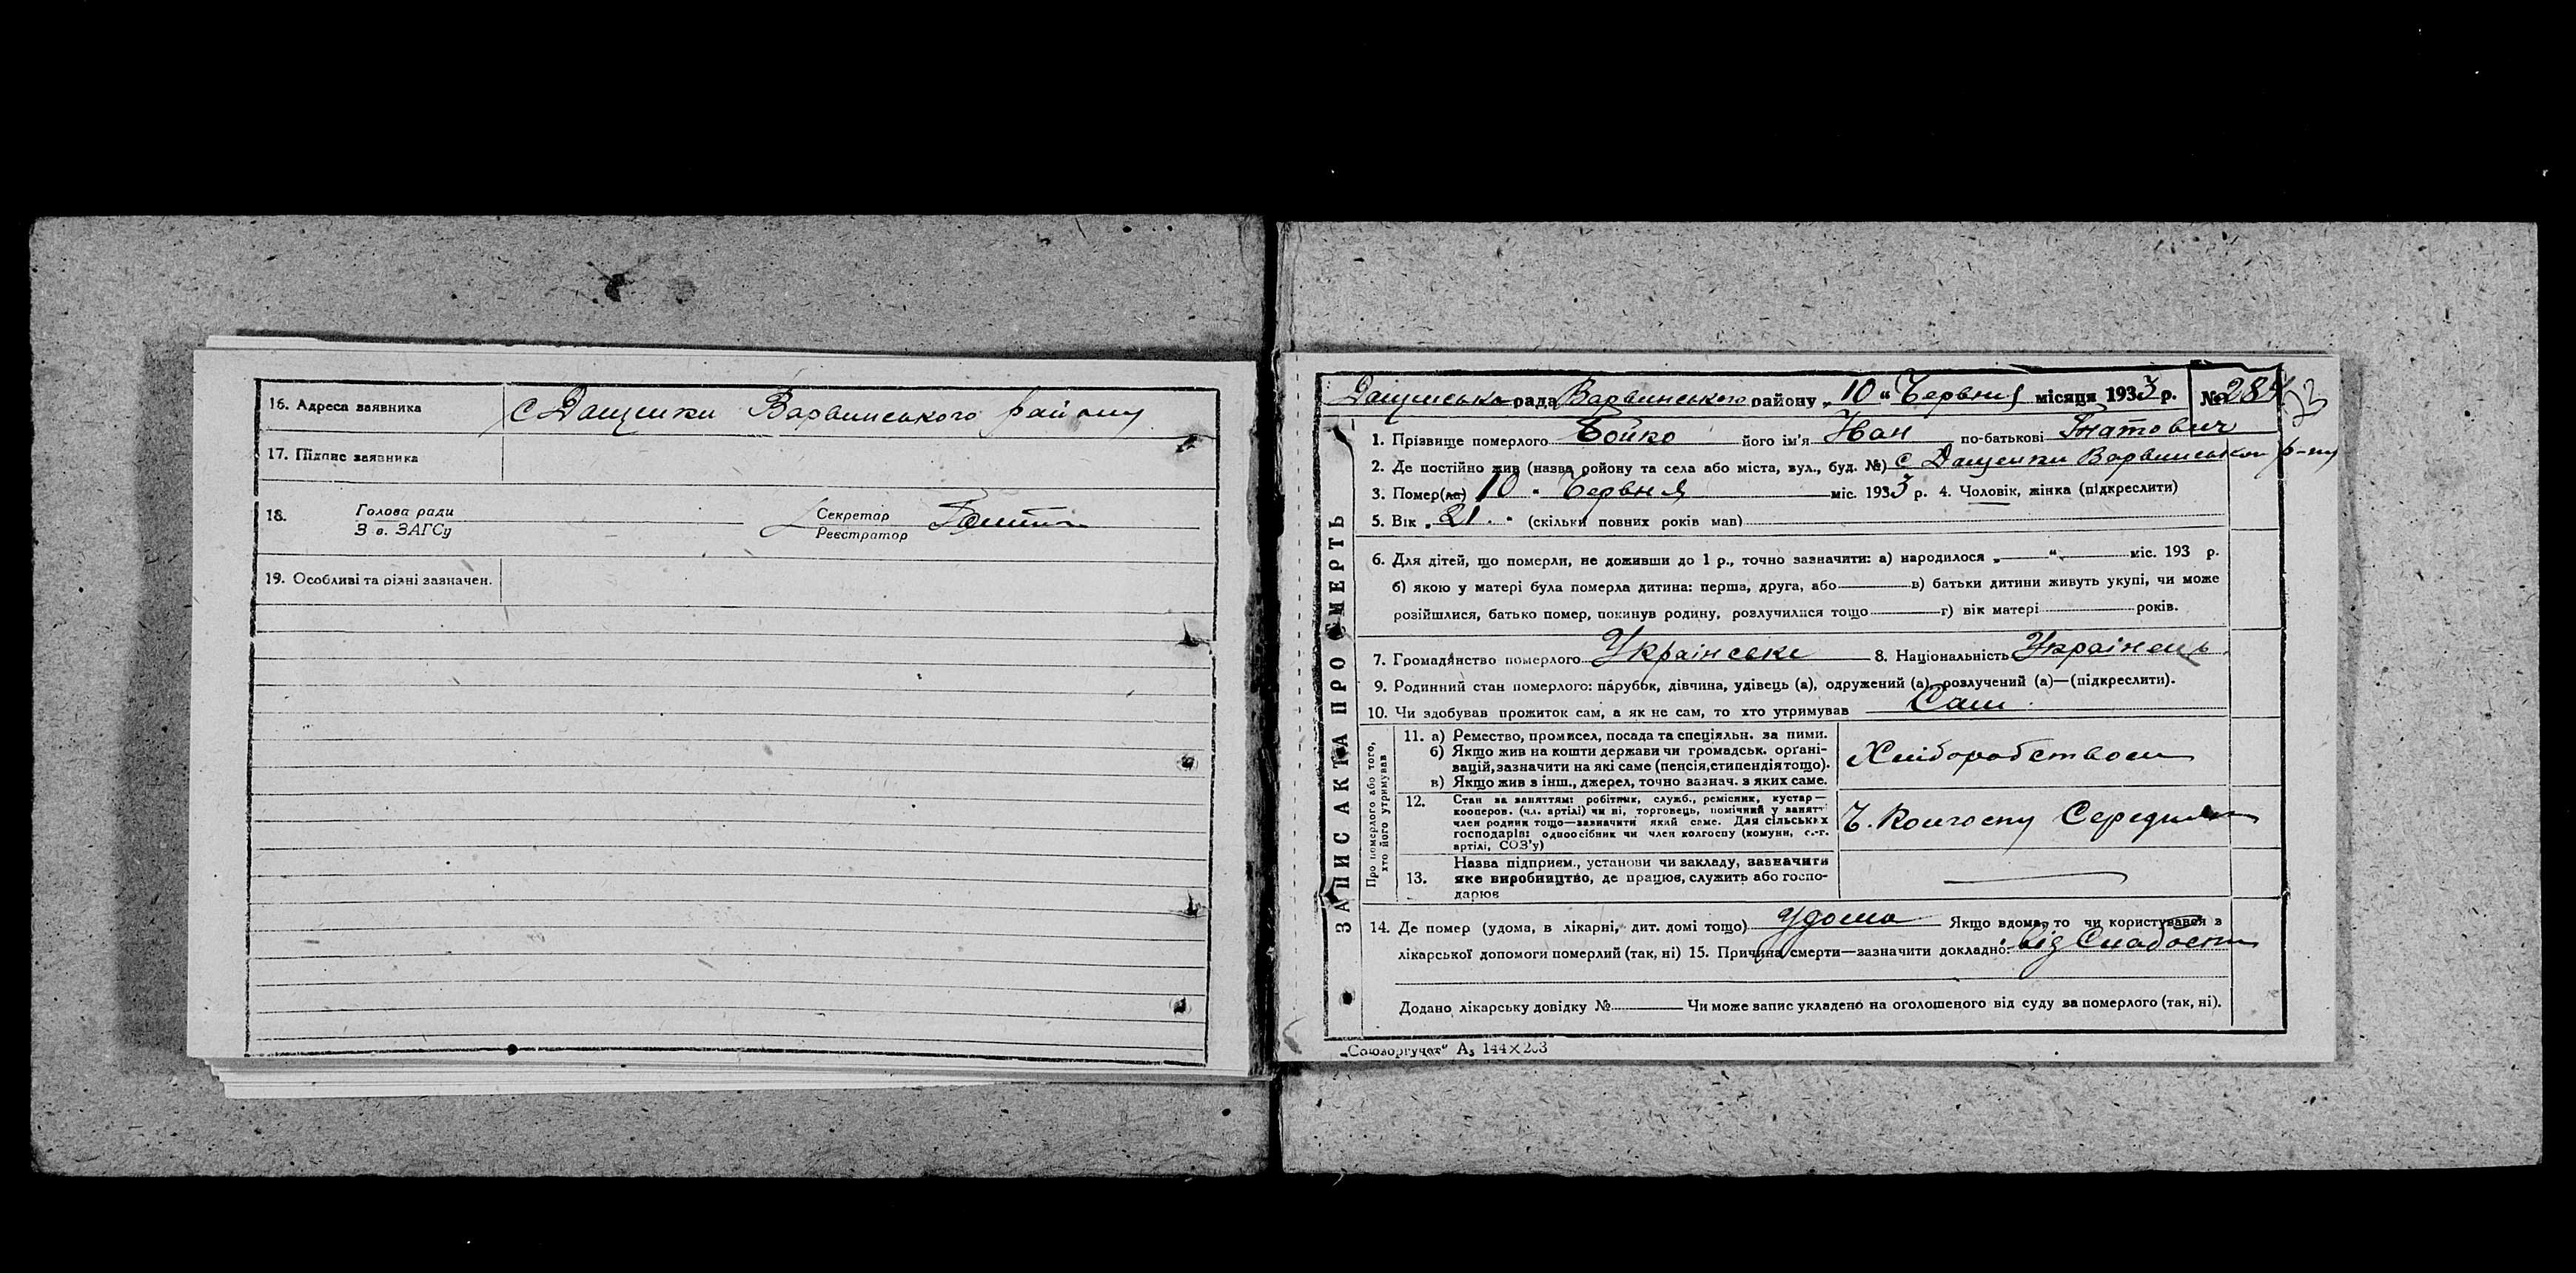 16. Адреса заявника С Дащенки Варвинського району
17. Підпис заявника
18. Голова ради Секретар
З в. ЗАГСу Реєстратор
19. Особливі та різні зазначен.
Дащенська рада Варвинського району „10“ Червня місяця 1933 р. №
1. Прізвище померлого Бойко його ім'я Иван по-батькові Гнатович
2. Де постійно жив (назва району та села або міста, вул., буд. №) с Дащенки Варвинського р-ну
3. Помер(ла) 10 „ Червня міс. 1933 р. 4. Чоловік, жінка (підкреслити)
5. Вік „21.“ (скільки повних років мав)
6. Для дітей, що померли, не доживши до 1 р., точно зазначити: а) народилося „ “ міс. 193 р.
б) якою у матері була померла дитина: перша, друга, або в) батьки дитини живуть укупі, чи може
розійшлися, батько помер, покинув родину, розлучилися тощо г) вік матері років.
7. Громадянство померлого Українське 8. Національність Українець
9. Родинний стан померлого: парубок, дівчина, удівець (а), одружений (а), розлучений (а)—(підкреслити).
10. Чи здобував прожиток сам, а як не сам, то хто утримував Сам
ЗАПИС АКТА ПРО СМЕРТЬ
Про померлого або того, хто його утримував
11. а) Ремество, промисел, посада та спеціяльн. за ними.
б) Якщо жив на кошти держави чи громадськ. орґані-
зацій, зазначити на які саме (пенсія, стипендія тощо).
в) Якщо жив з інш., джерел, точно зазнач. з яких саме.
Хліборобством
12. Стан за заняттям: робітник, служб., ремісник, кустар—
кооперов. (чл. артілі) чи ні, торговець, помічний у занятт.
член родини тощо—зазначити який саме. Для сільських
господарів: одноосібник чи член колгоспу (комуни, с.-г.
артілі, СОЗ'у)
Ч. Колгоспу Середняк
13. Назва підприєм., установи чи закладу, зазначити
яке виробництво, де працює, служить або госпо-
дарює
14. Де помер (удома, в лікарні, дит. домі тощо) Удома Якщо вдома, то чи користувався з
лікарської допомоги померлий (так, ні) 15. Причина смерти—зазначити докладно: від Слабости
Додано лікарську довідку № Чи може запис укладено на оголошеного від суду за померлого (так, ні).
„Союзоргучет“ А₅ 144×203